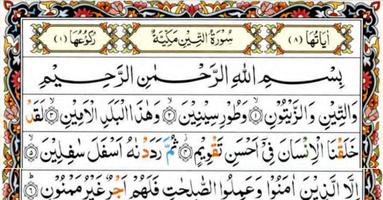 اٰيَاتُهَا (٨) سُوْرَةُ التِّيْنِ مَكِّيَّةٌ رُكُوْعُهَا (١)
بِسْمِ اللّٰهِ الرَّحْمٰنِ الرَّحِيْمِ
وَالتِّيْنِ وَالزَّيْتُوْنِ ۝١ وَطُوْرِ سِيْنِيْنَ ۝٢ وَهٰذَا الْبَلَدِ الْاَمِيْنِ ۝٣ لَقَدْ
خَلَقْنَا الْاِنْسَانَ فِيْ اَحْسَنِ تَقْوِيْمٍ ۝٤ ثُمَّ رَدَدْنٰهُ اَسْفَلَ سٰفِلِيْنَ ۝٥
اِلَّا الَّذِيْنَ اٰمَنُوْا وَعَمِلُوا الصّٰلِحٰتِ فَلَهُمْ اَجْرٌ غَيْرُ مَمْنُوْنٍ ۝٦